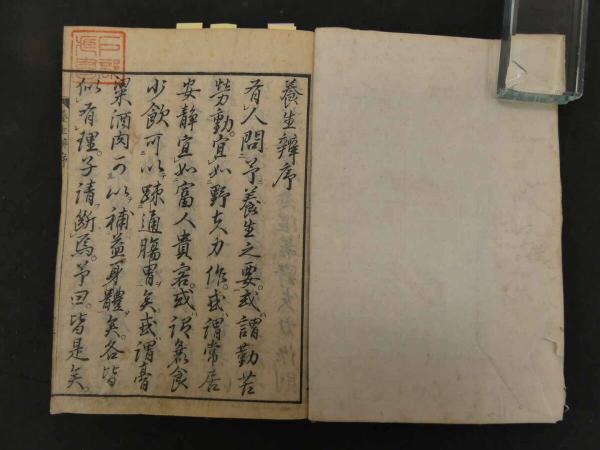 養生辨序
有人問予養生之要。或謂勤苦
勞動。宜如野夫力作。或謂常居
安静。宜如富人貴客。或謂蔬食
少飲可以踈通腸胃矣。或謂膏
粱酒肉可以補益身體矣。各皆
似有理。子請断焉。予曰。皆是矣。